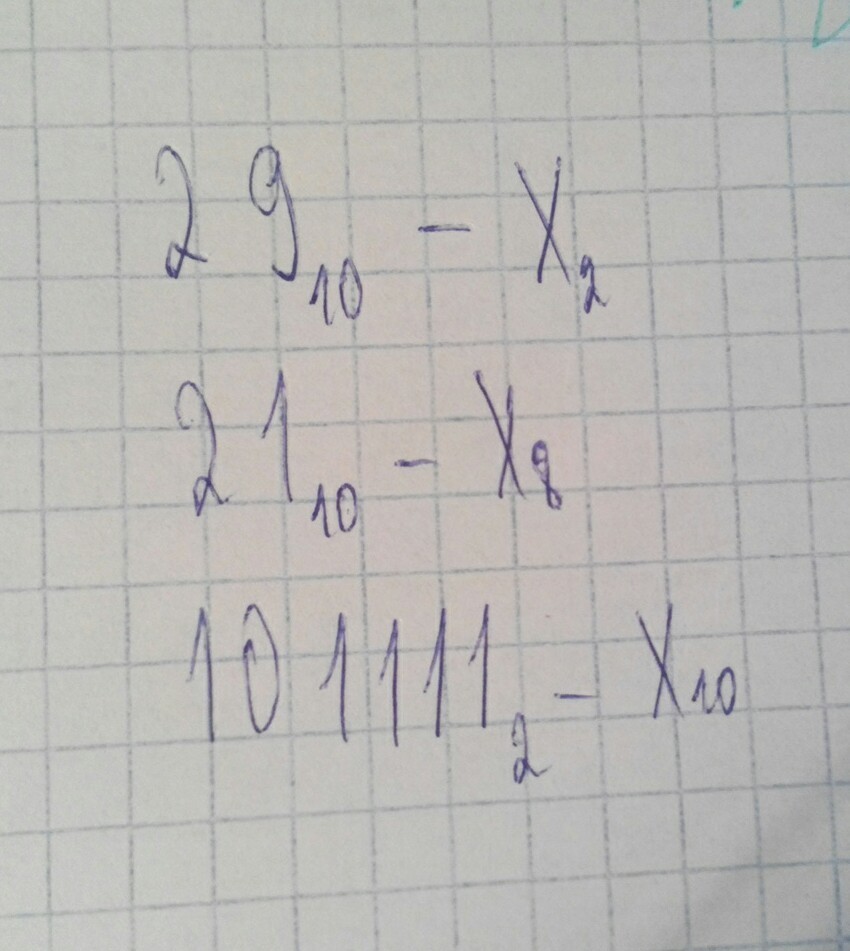 29₁₀ - X₂
21₁₀ - X₈
101111₂ - X₁₀